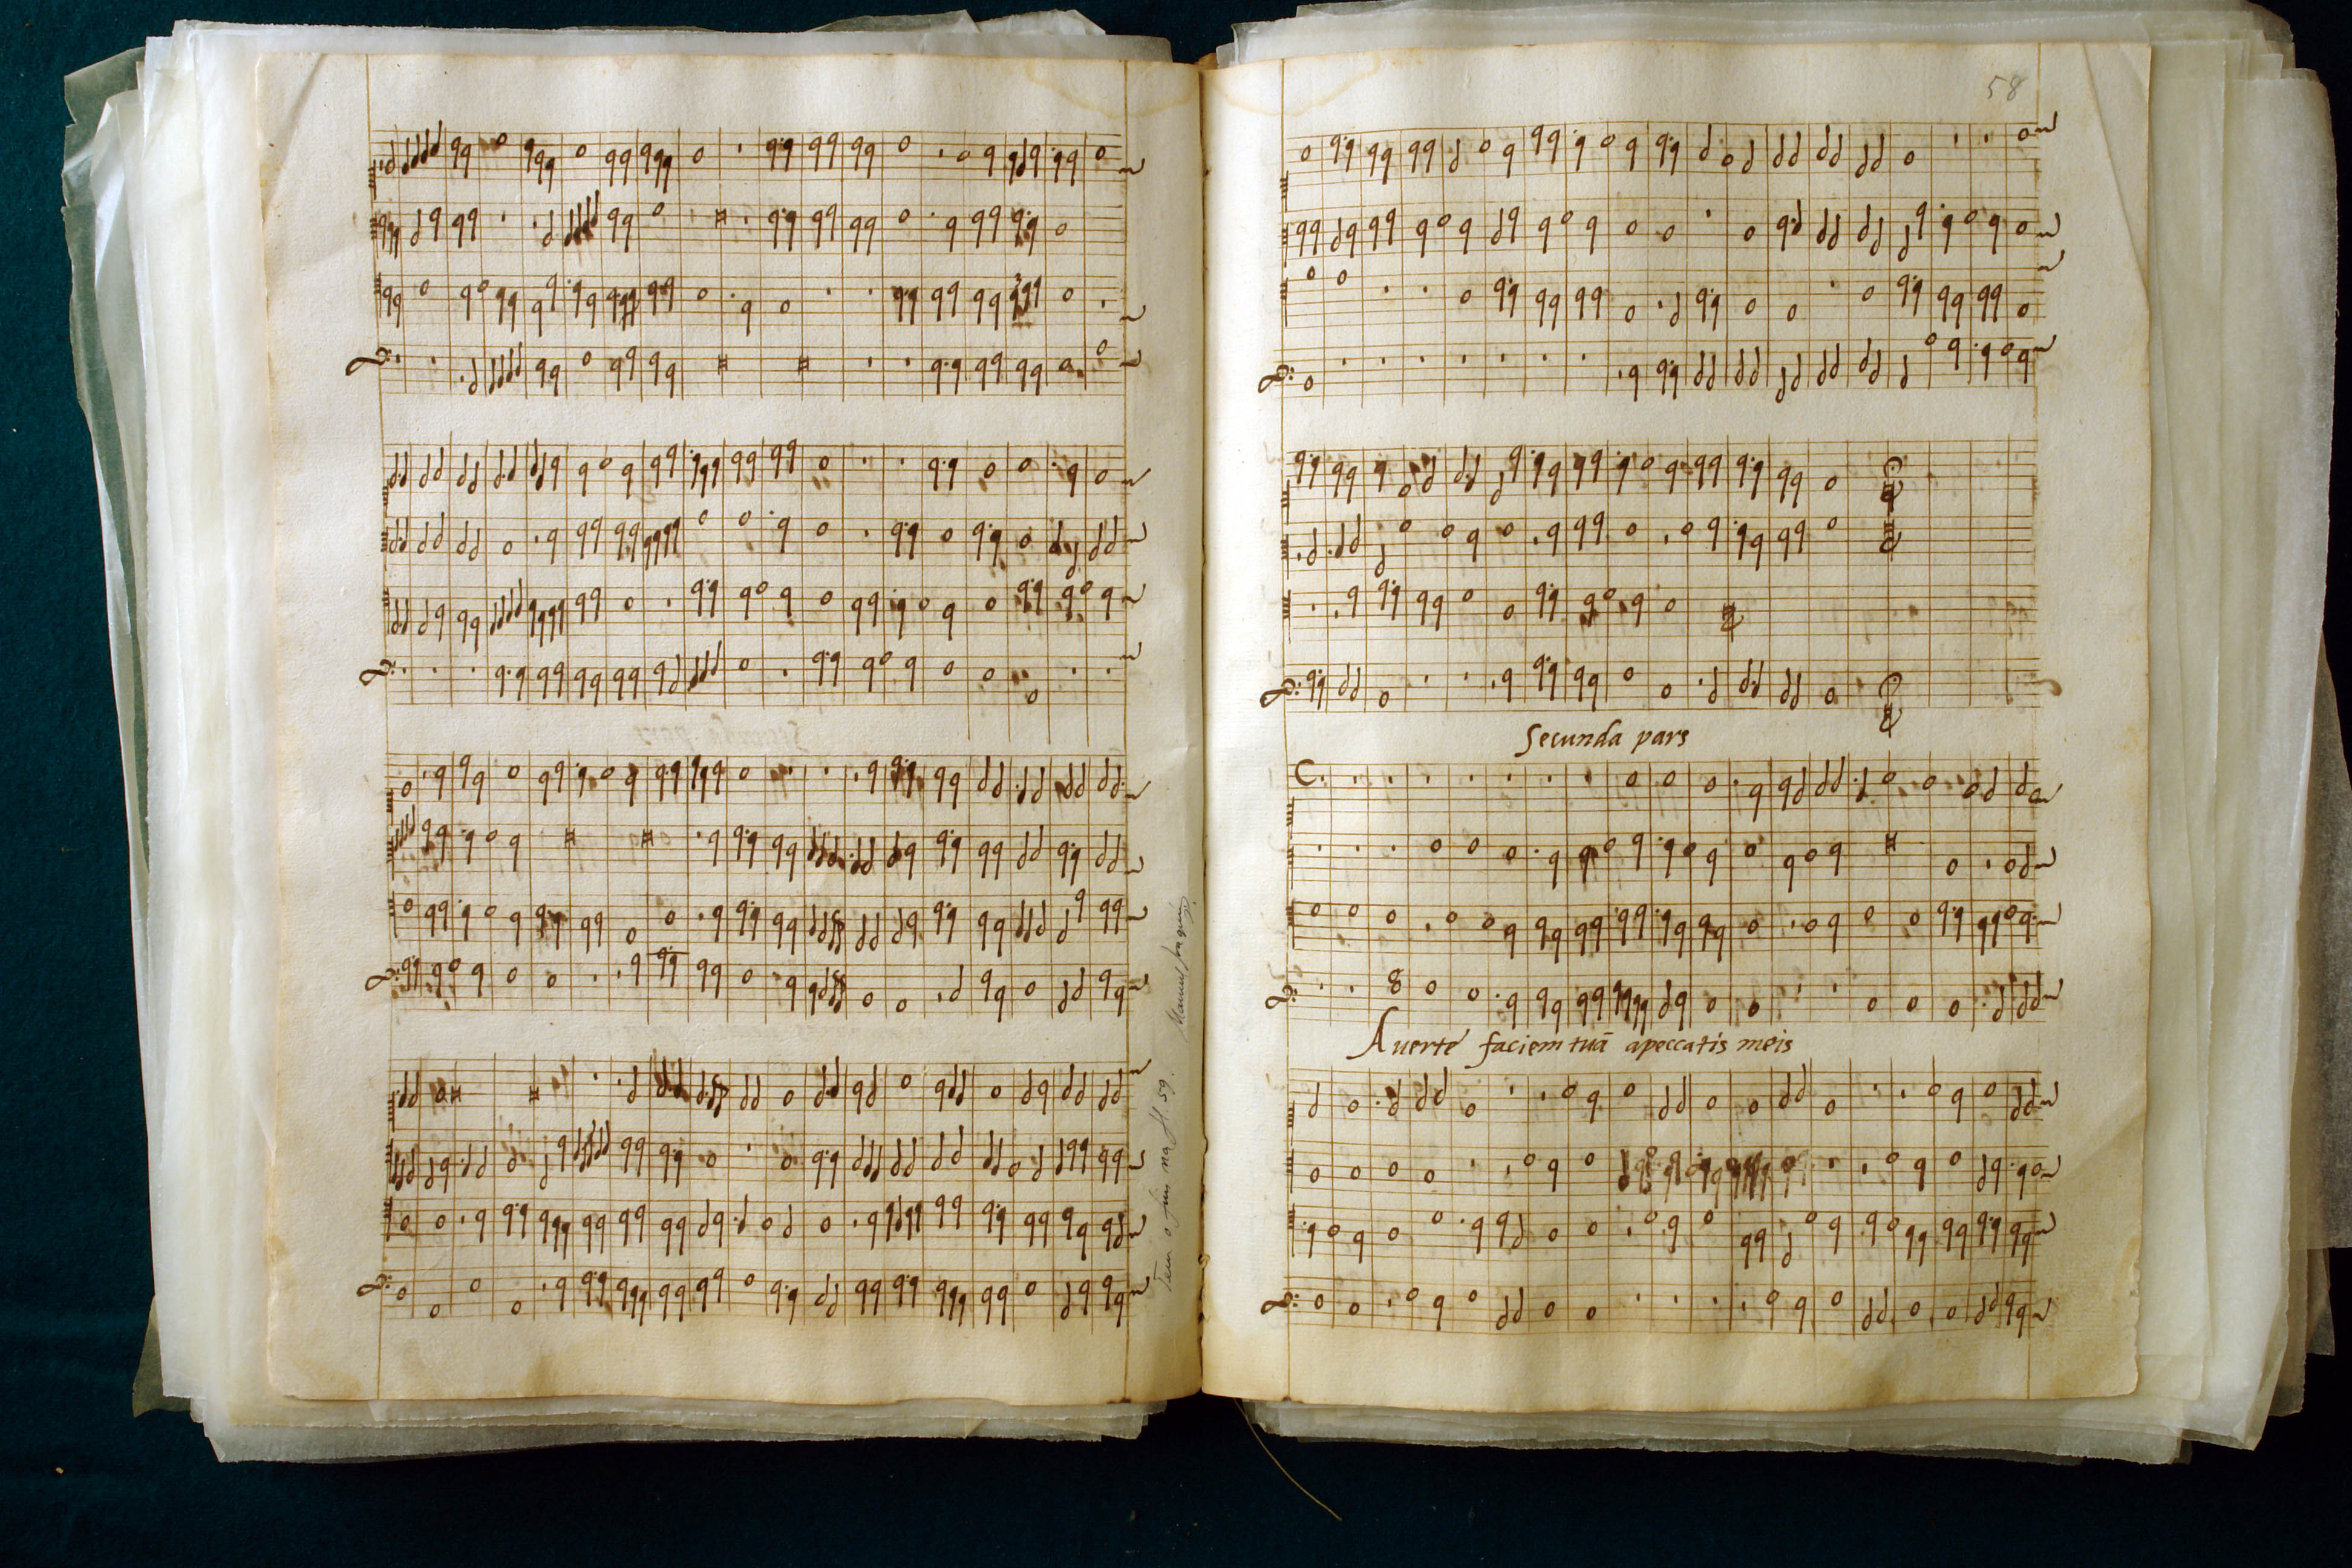 58
Secunda pars
Auerte faciem tuã apeccatis meis
Tem o fim na fl 59.
Manuel Joaquim